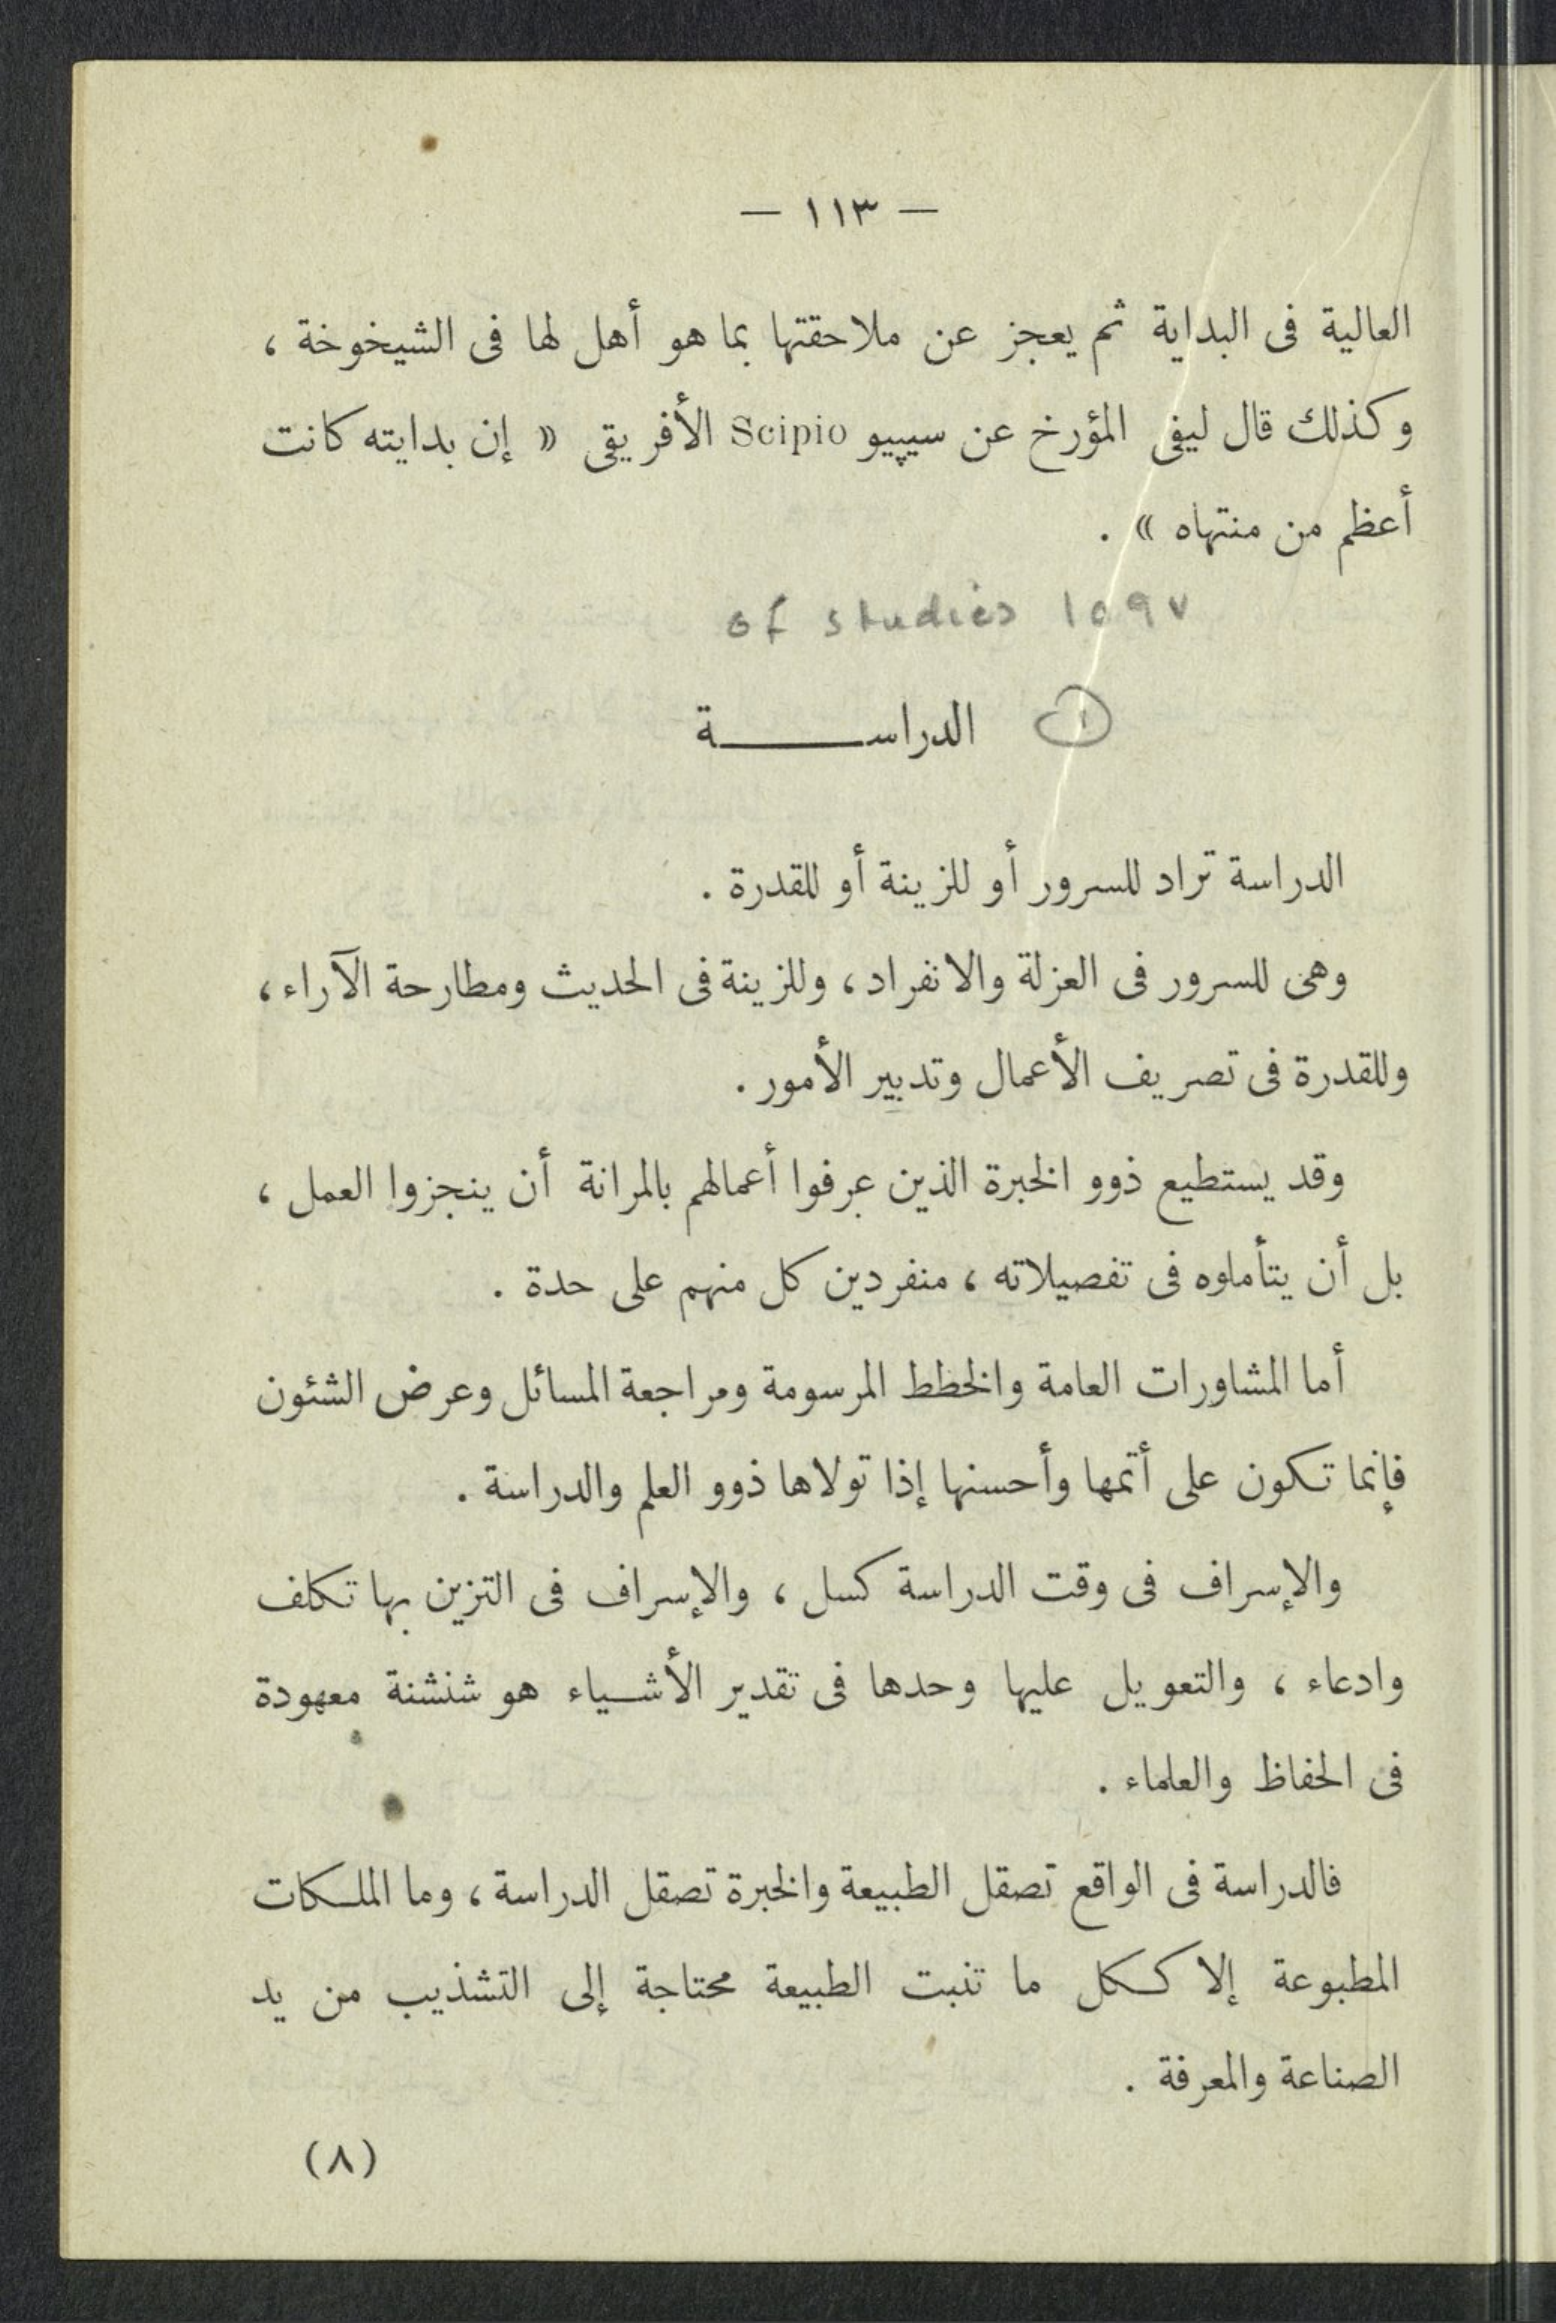 — ١١٣ —
العالية فى البداية ثم يعجز عن ملاحقتها بما هو أهل لها فى الشيخوخة ،
وكذلك قال ليفى المؤرخ عن سيپيو Scipio الأفريقى « إن بدايته كانت
أعظم من منتهاه » .
of studies ١٥٩٧
١ الدراســـــــة
الدراسة تراد للسرور أو للزينة أو للقدرة .
وهى للسرور فى العزلة والانفراد ، وللزينة فى الحديث ومطارحة الآراء ،
وللقدرة فى تصريف الأعمال وتدبير الأمور .
وقد يستطيع ذوو الخبرة الذين عرفوا أعمالهم بالمرانة أن ينجزوا العمل ،
بل أن يتأملوه فى تفصيلاته ، منفردين كل منهم على حدة .
أما المشاورات العامة والخطط المرسومة ومراجعة المسائل وعرض الشئون
فإنما تكون على أتمها وأحسنها إذا تولاها ذوو العلم والدراسة .
والإسراف فى وقت الدراسة كسل ، والإسراف فى التزين بها تكلف
وادعاء ، والتعويل عليها وحدها فى تقدير الأشــياء هو شنشنة معهودة
فى الحفاظ والعلماء .
فالدراسة فى الواقع تصقل الطبيعة والخبرة تصقل الدراسة ، وما الملـكات
المطبوعة إلا كـكل ما تنبت الطبيعة محتاجة إلى التشذيب من يد
الصناعة والمعرفة .
(٨)